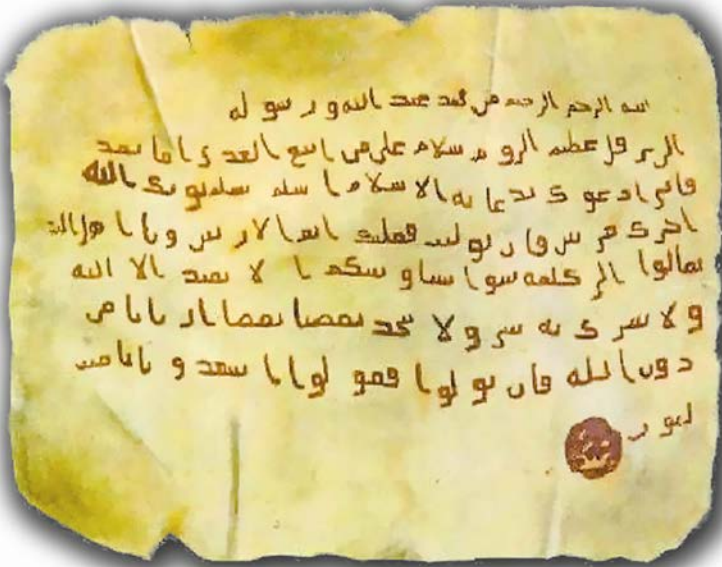 بسم الله الرحمن الرحيم من محمد عبد الله ورسوله
الى هرقل عظيم الروم سلام على من اتبع الهدى اما بعد
فاني ادعوك بدعاية الاسلام اسلم تسلم يوتك الله
اجرك مرتين فان توليت فعليك اثم الاريسين ويا اهل
تعالوا الى كلمة سوا بيننا وبينكم الا نعبد الا الله
ولا نشرك به شي ولا يتخذ بعضنا بعضا اربابا من
دون الله فان تولوا فقولوا اشهدوا بانا مس
لمون